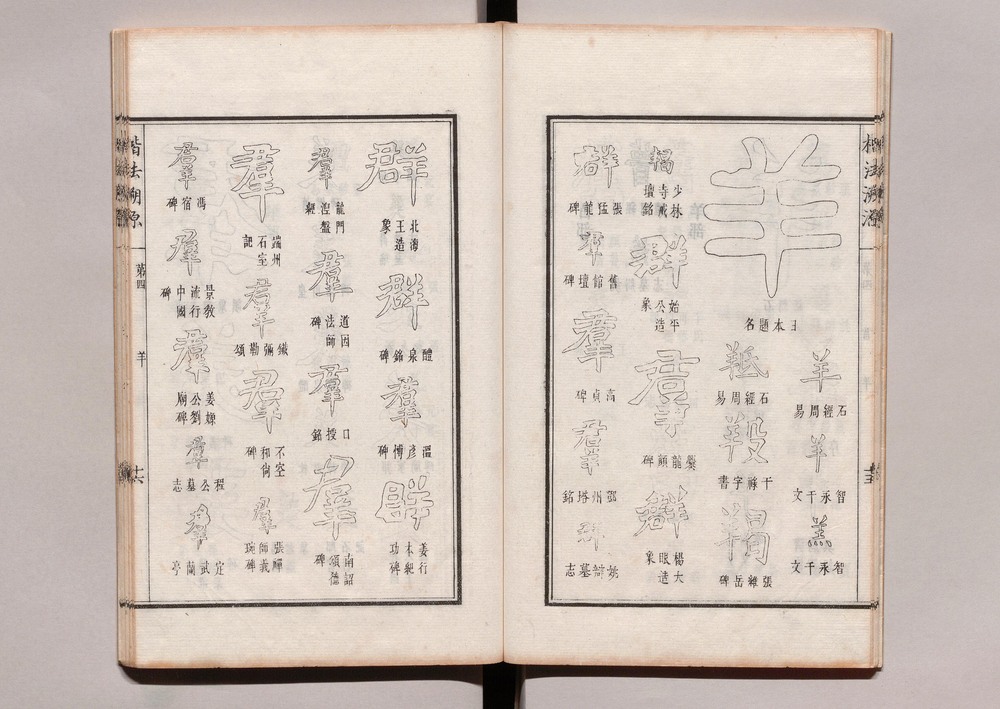 楷法溯源
羊
本題名
羊
石經周易
羊
智永千文
羔
智永千文
羝
石經周易
羖
干祿字書
羯
岳碑
羯
少林寺戒壇銘
群
始平公造象
羣
爨龍顏碑
群
楊大眼造象
群
張猛龍碑
羣
舊館壇碑
羣
高貞碑
羣
鄧州塔銘
群
姚辯墓志
群
北海王造象
群
醴泉銘碑
羣
溫彥博碑
群
姜行本紀功碑
羣
龍門涅盤經
羣
道因法師碑
羣
口授銘
羣
南詔頌德碑
羣
端州石室記
羣
鐵彌勒頌
羣
不空和尚碑
羣
張禪師義琬碑
羣
馮宿碑
羣
景教流行中國碑
羣
姜嫄公劉廟碑
羣
程公墓志
羣
定武蘭亭
楷法溯源
第四
羊
十六